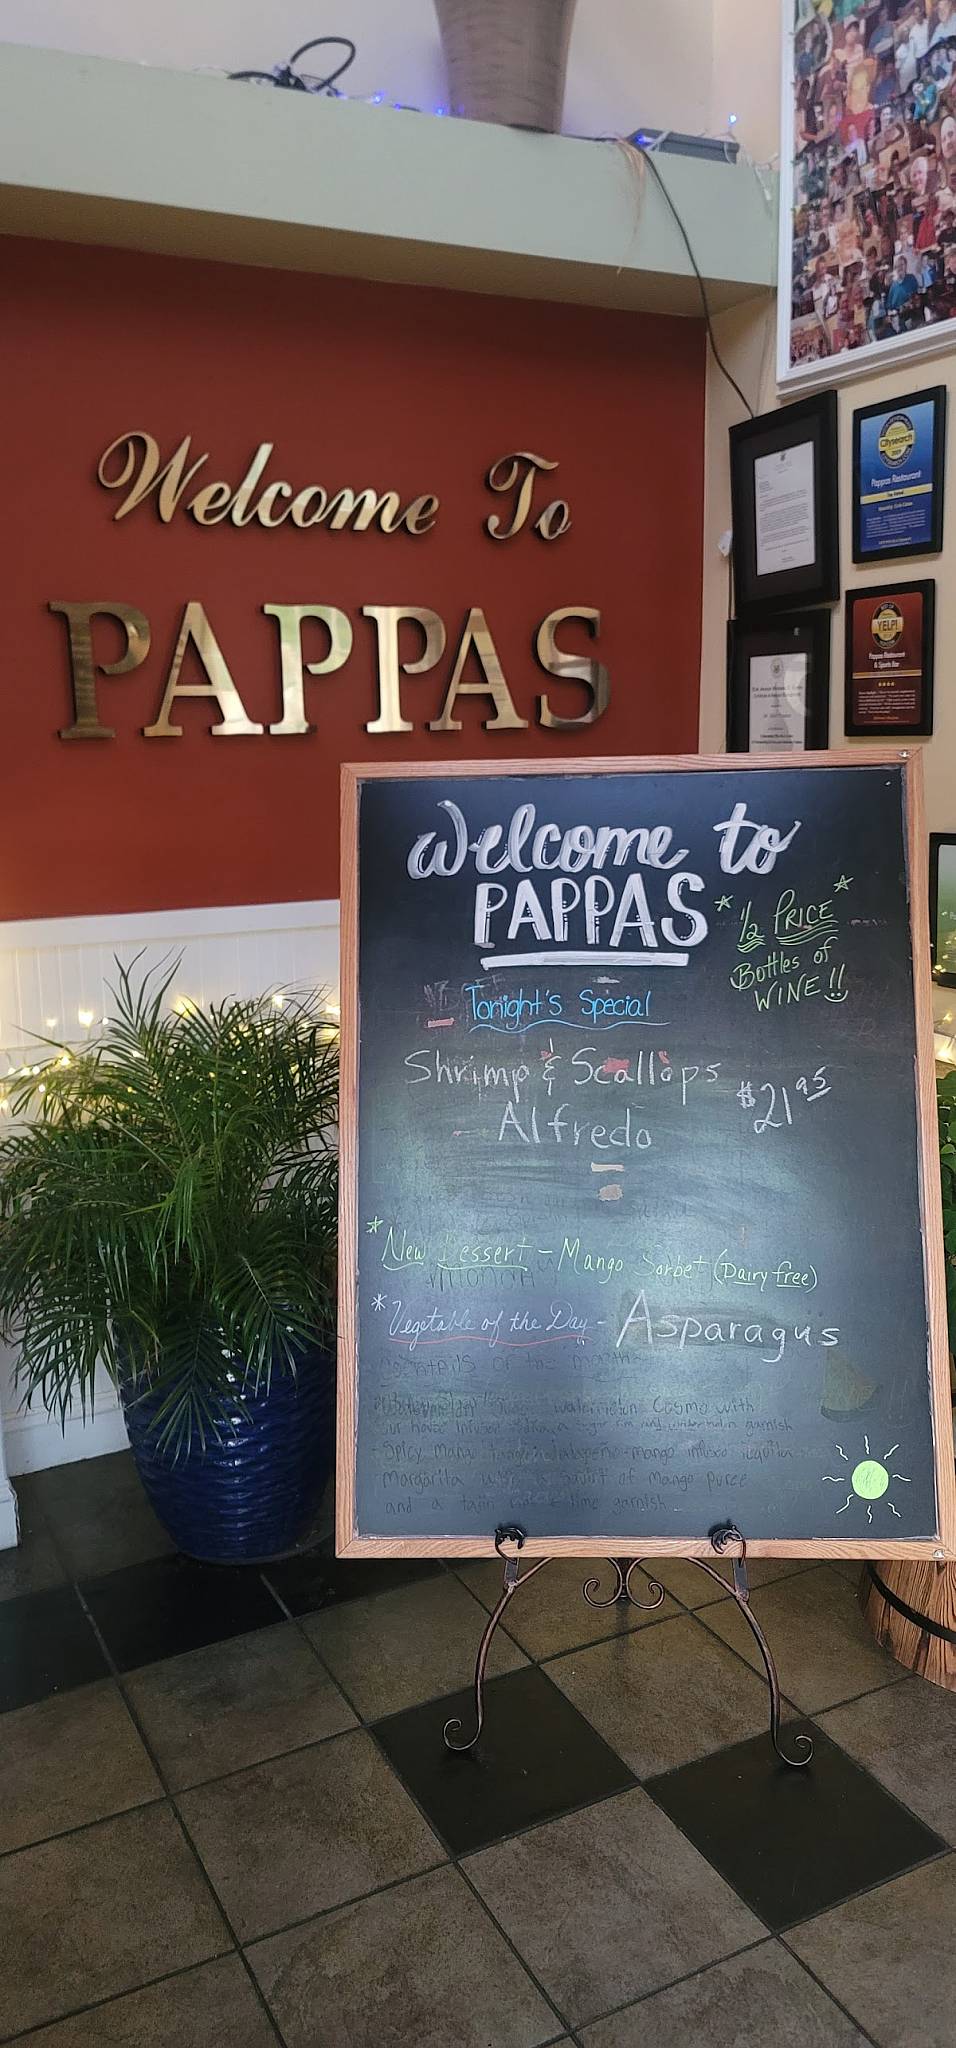 Welcome To
PAPPAS
Citysearch
Pappas Restaurant
YELP!
Pappas Restaurant
& Sports Bar
Welcome to
PAPPAS
* 1/2 PRICE *
Bottles of
WINE!!
Tonight's Special
Shrimp & Scallops
Alfredo
$21.95
* New Dessert - Mango Sorbet (Dairy free)
* Vegetable of the Day - Asparagus
Cocktails of the month
watermelon Cosmo with
our house infused garnish
Spicy mango mango infused tequila
margarita with a squirt of mango puree
and a tajin lime garnish